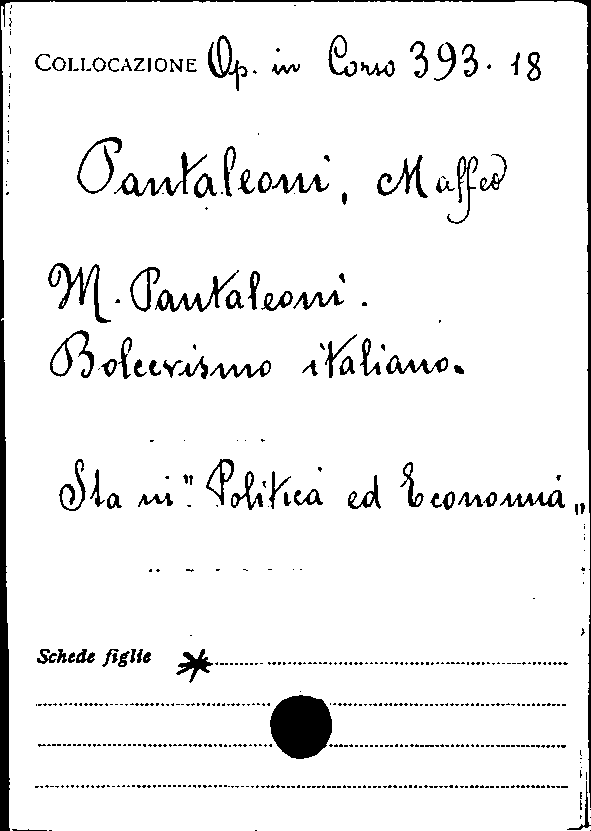 COLLOCAZIONE Op. in Corso 393. 18
Pantaleoni, Maffeo
M. Pantaleoni.
Bolcevismo italiano.
Sta in "Politica ed Economia"
Schede figlie *